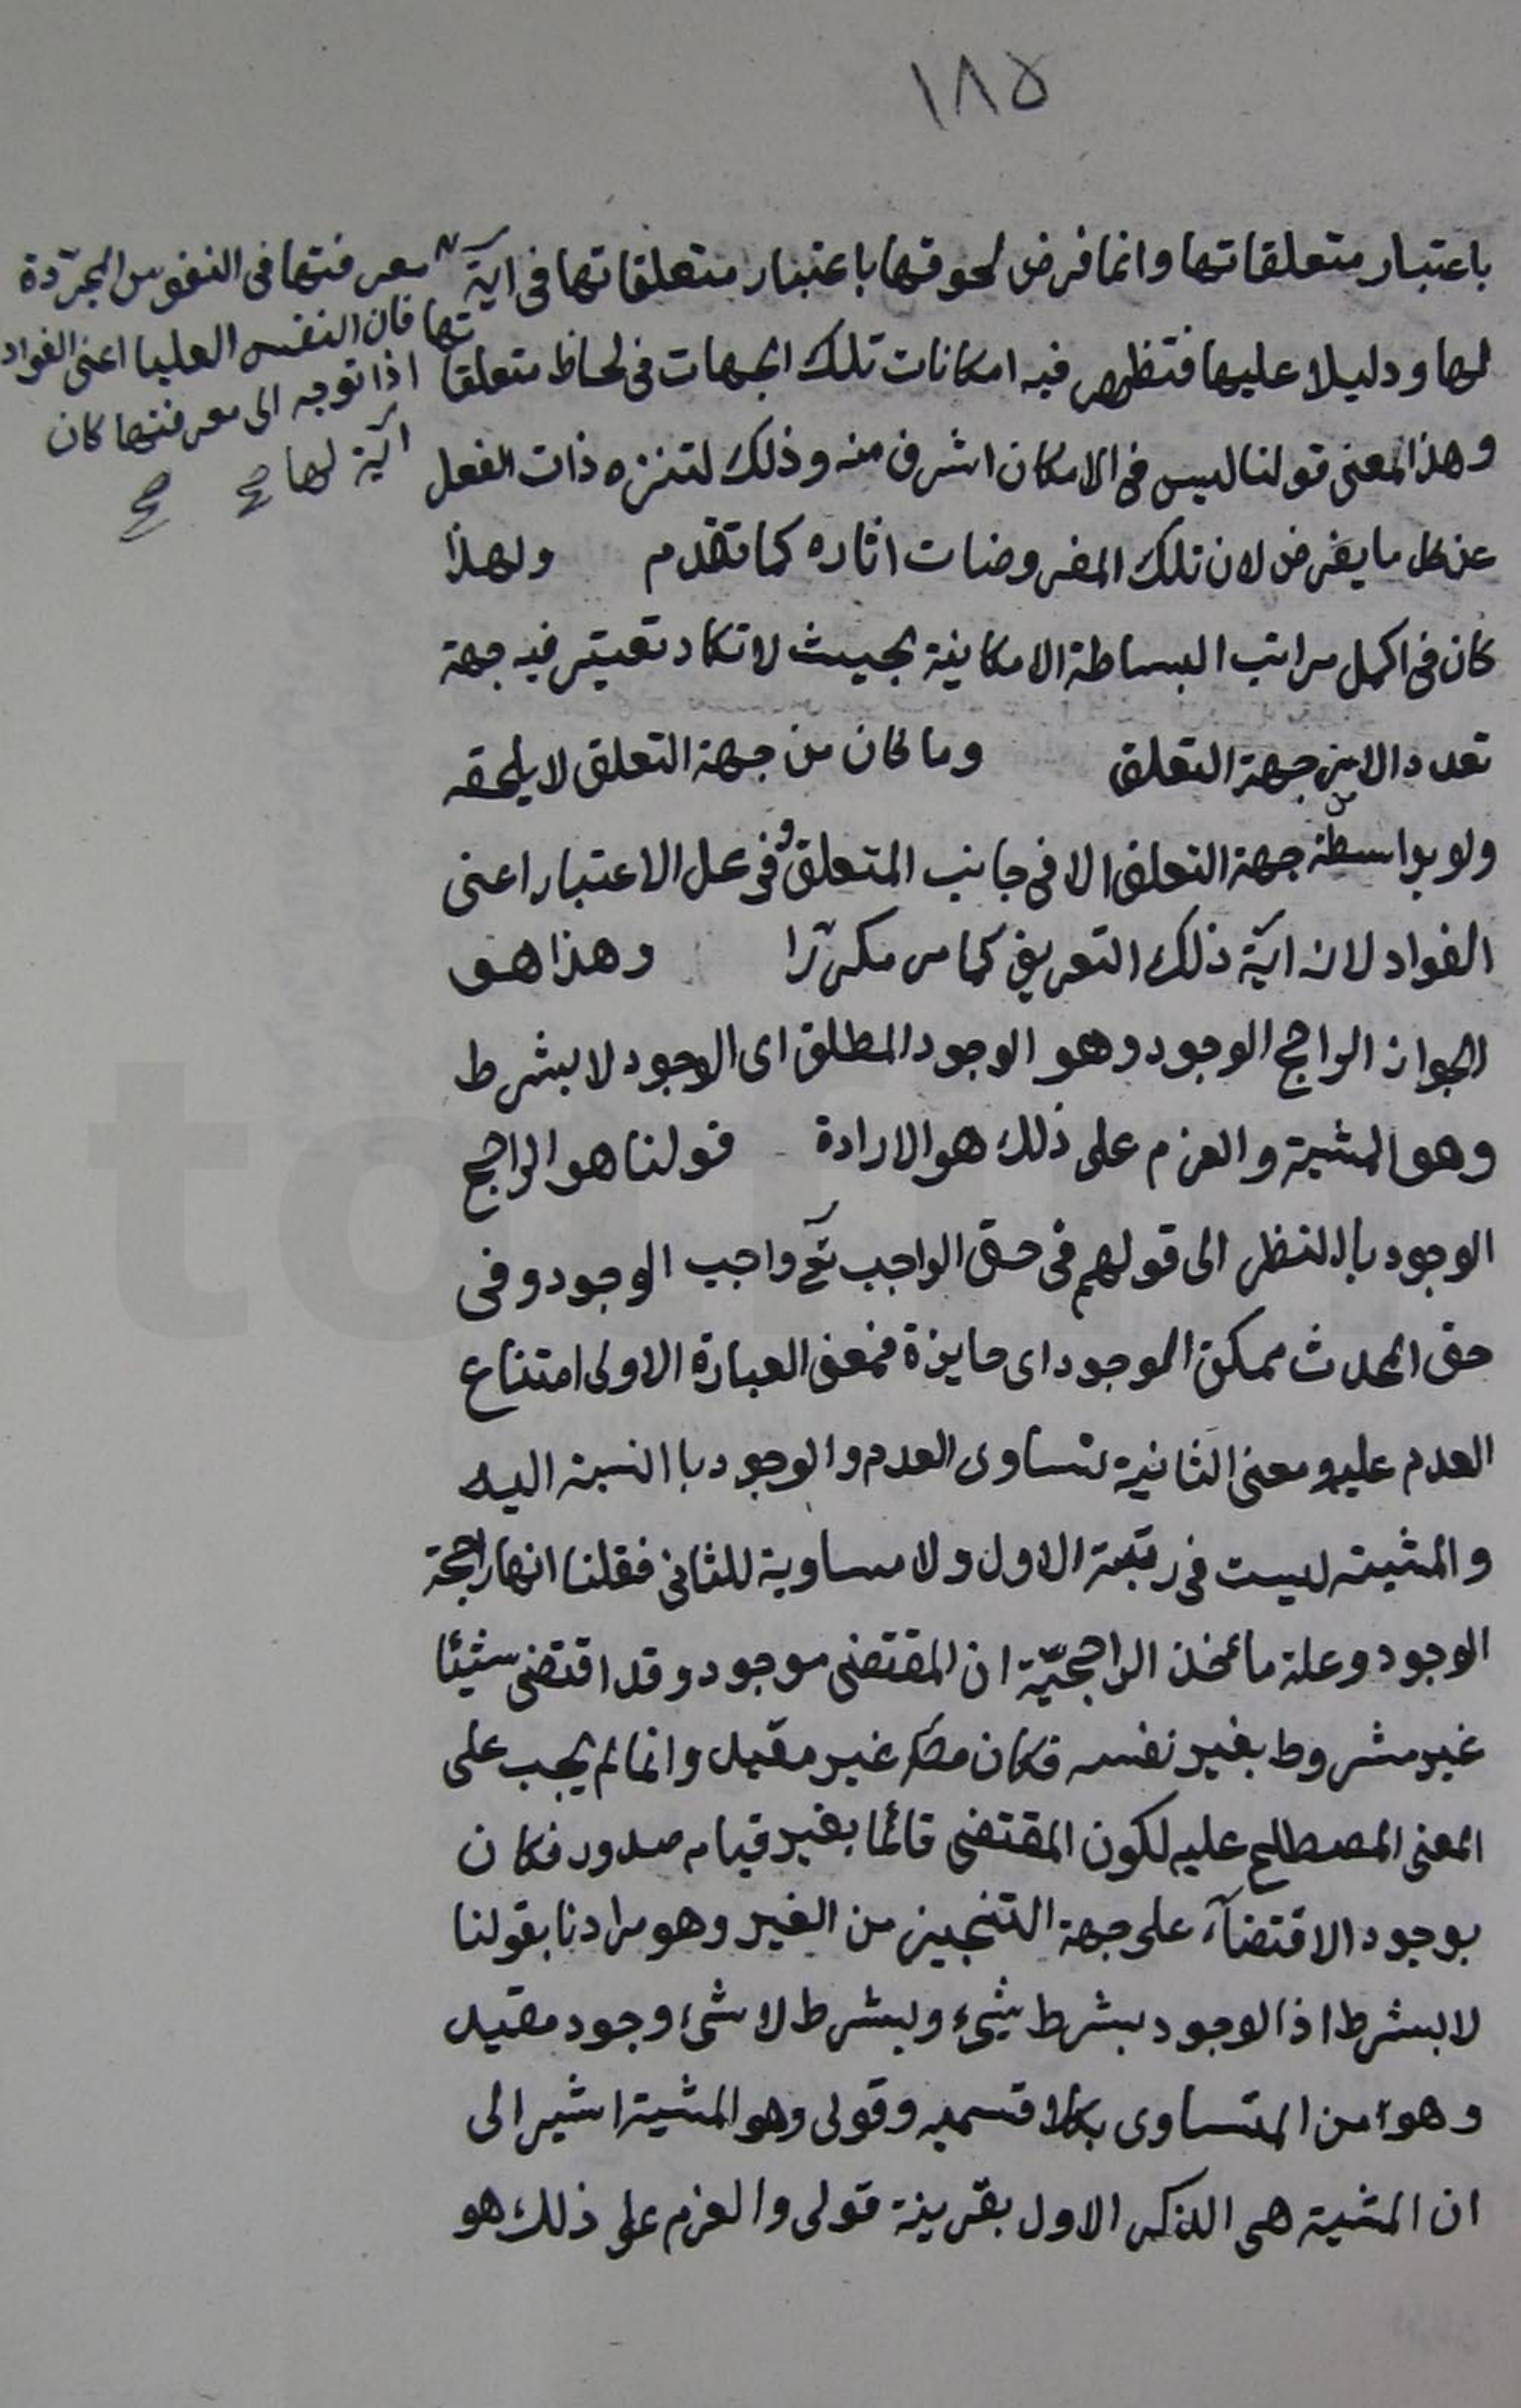 ١٨٥
باعتبار متعلقاتها وانما فرض لحوقها باعتبار متعلقاتها فى آية
معرفتها فى النفوس المجرّدة
تها فان النفس العليا اعنى الفواد
اذا توجه الى معرفتها كان
آية لها صح صح
لها ودليلا عليها فتظهر فيه امكانات تلك الجهات فى لحاظ متعلقا
وهذا المعنى قولنا ليس فى الامكان اشرف منه وذلك لتنزه ذات الفعل
عن كل ما يفرض لان تلك المفروضات اثاره كما تقدم ولهذا
كان فى اكمل مراتب البساطة الامكانية بحيث لا تكاد تعتبر فيه جهة
تعدد الا من جهة التعلق وما كان من جهة التعلق لا يلحقه
ولو بواسطة جهة التعلق الا فى جانب المتعلق وفى محل الاعتبار اعنى
الفواد لانه آية ذلك التعريف كما مر مكررّا وهذا هو
الجواز الراجح الوجود وهو الوجود المطلق اى الوجود لا بشرط
وهو المشية والعزم على ذلك هو الارادة قولنا هو الراجح
الوجود بالنظر الى قولهم فى حق الواجب تع واجب الوجود وفى
حق المحدث ممكن الوجود اى جايزة فمعنى العبارة الاولى امتناع
العدم عليه ومعنى الثانية تساوى العدم والوجود باالنسبة اليه
والمشية ليست فى رتبة الاول ولا مساوية للثانى فقلنا انها راجحة
الوجود وعلة مأخذ الراجحيّة ان المقتضى موجود وقد اقتضى شيئا
غير مشروط بغير نفسه فكان غير مقيد وانما لم يجب على
المعنى المصطلح عليه لكون المقتضى قائما بغيره قيام صدور فكان
بوجود الاقتضآء على جهة التنجيز من الغير وهو مرادنا بقولنا
لا بشرط اذ الوجود بشرط شىء وبشرط لا شىء وجود مقيد
وهو من المتساوى بكلا قسميه وقولى وهو المشية اشير الى
ان المشية هى الذكر الاول بقرينة قولى والعزم على ذلك هو